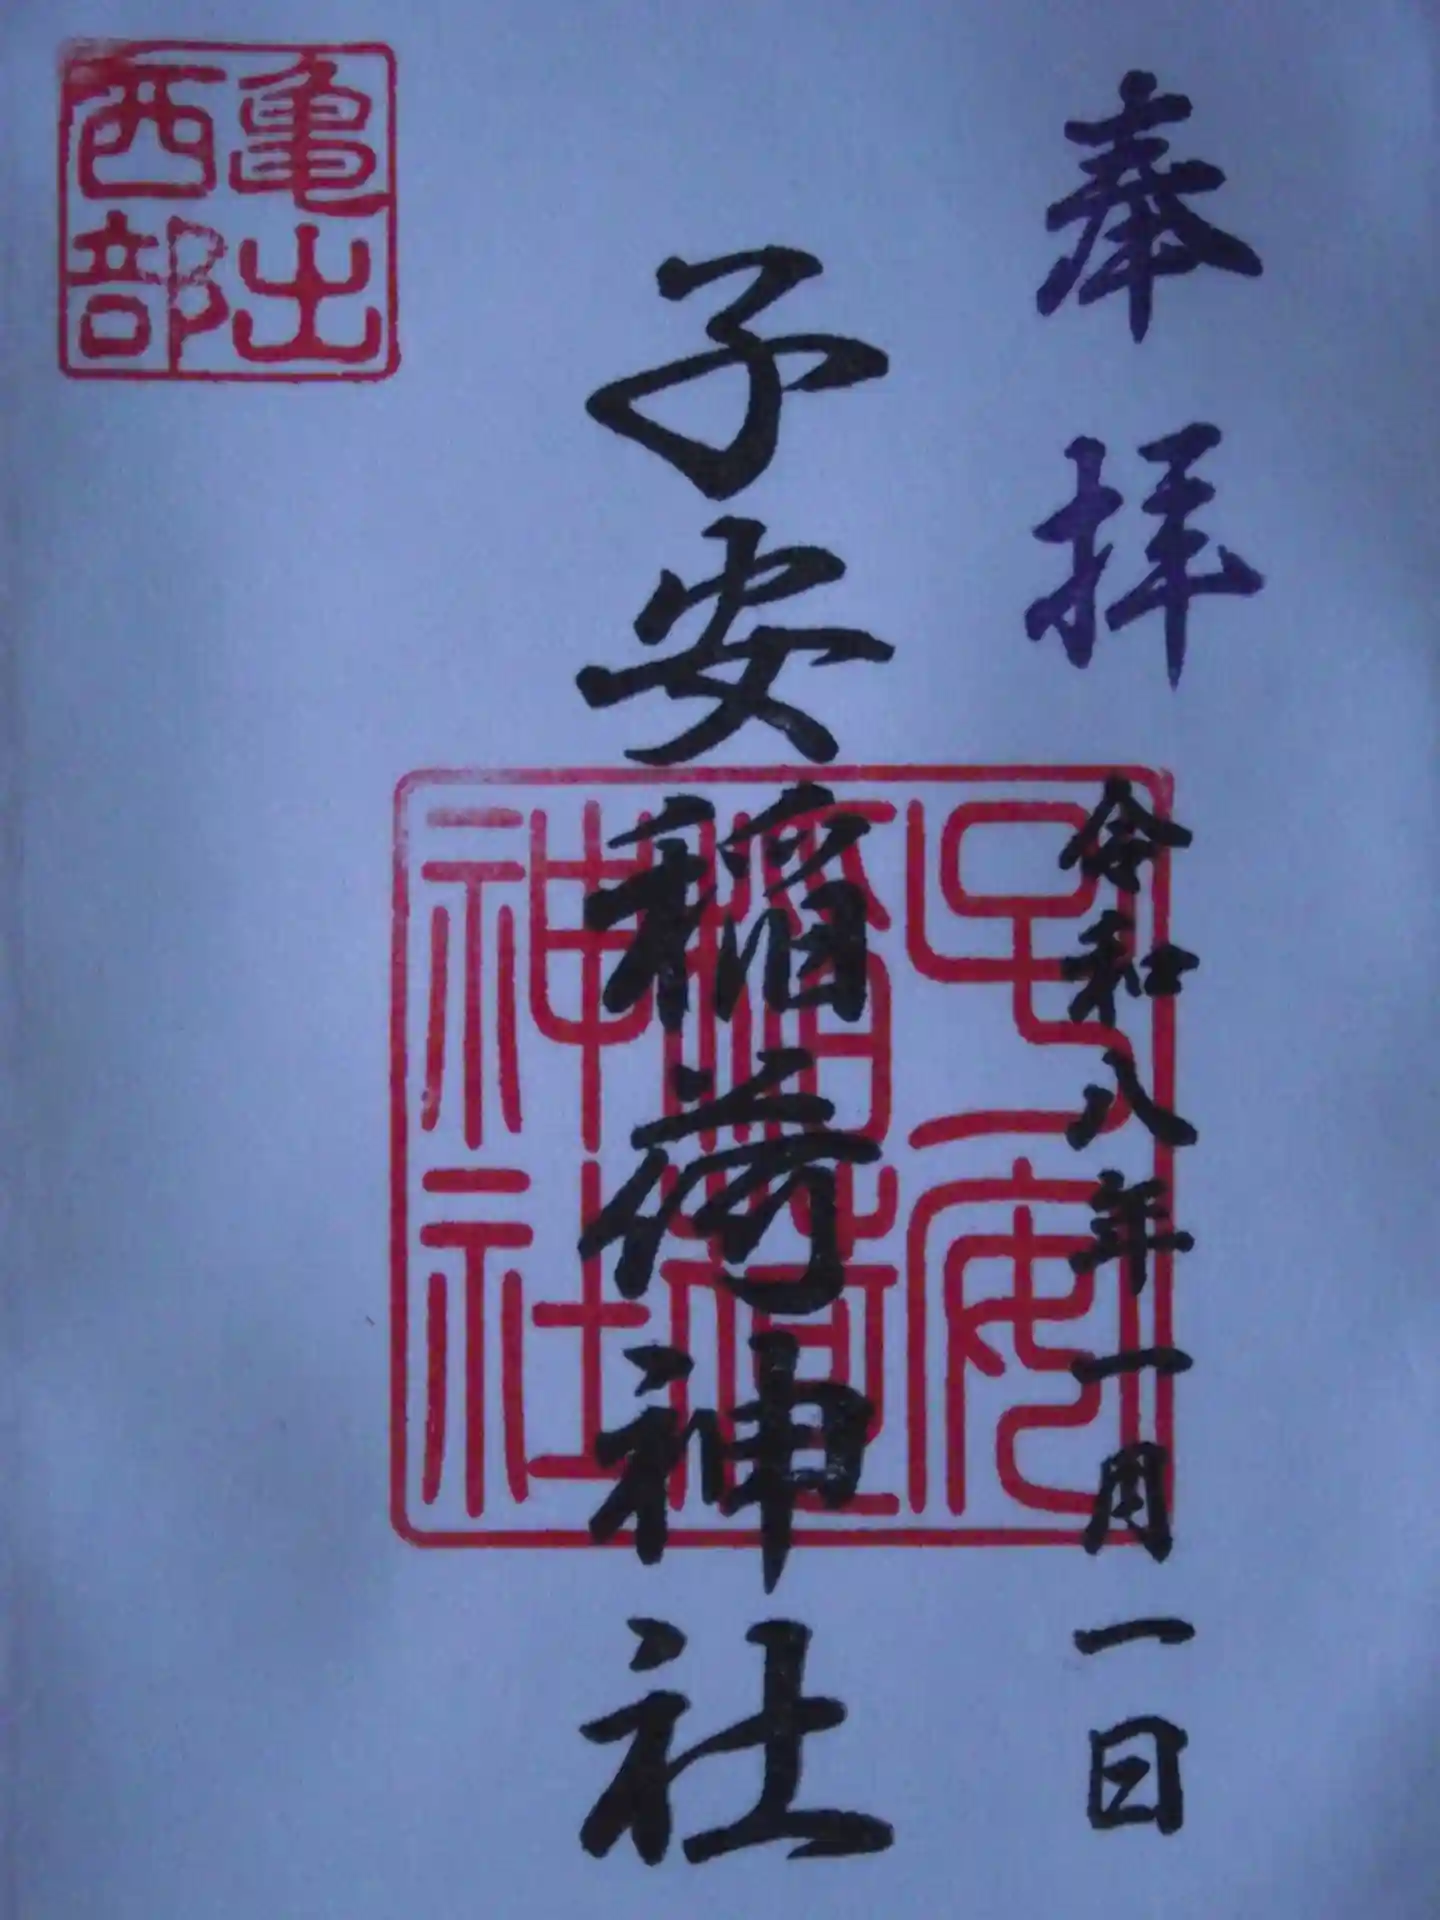 奉拝
令和八年一月一日
子安稲荷神社
子安
稲荷
神社
亀出
西部